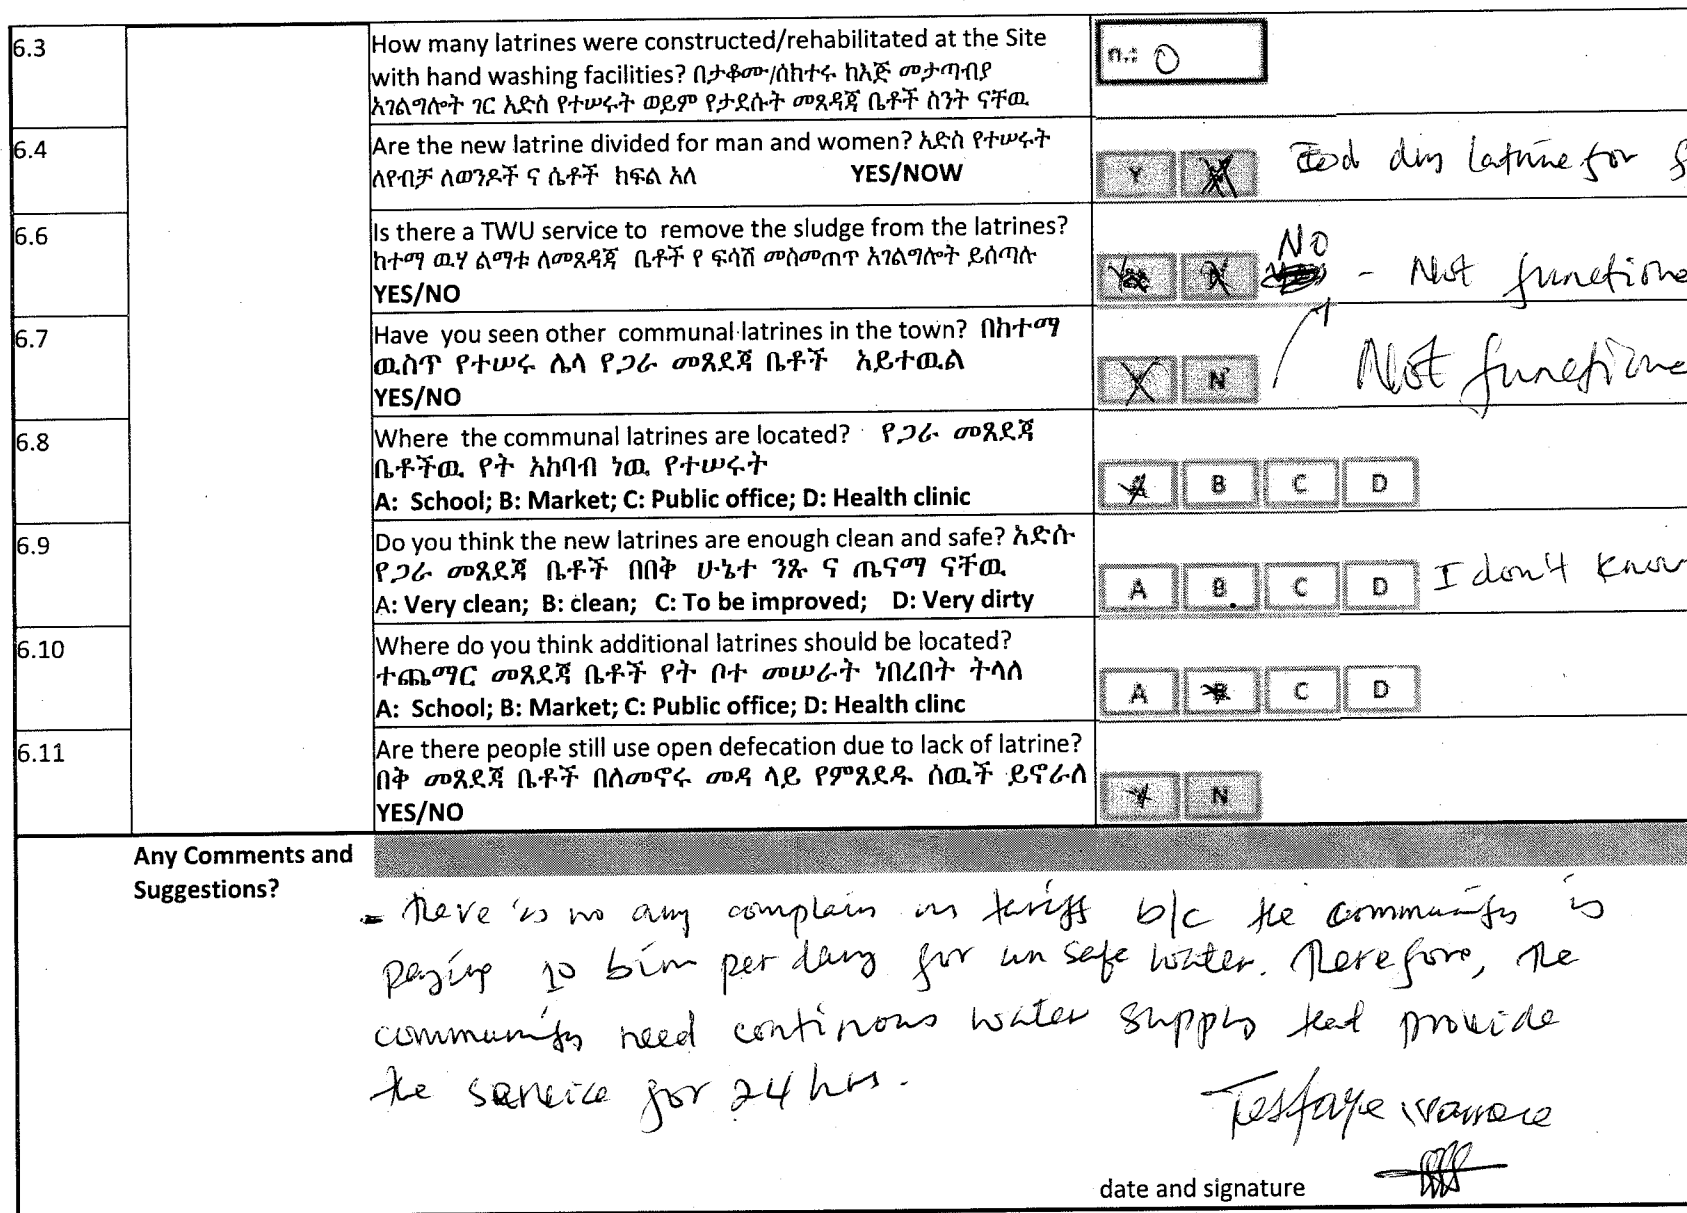 6.3
How many latrines were constructed/rehabilitated at the Site
with hand washing facilities? በታቆሙ/ሰከተሩ ከእጅ መታጣብያ
አገልግሎት ገር አድስ የተሠሩት ወይም የታደሱት መጸዳጃ ቤቶች ስንት ናቸዉ
n.: 0
6.4
Are the new latrine divided for man and women? አድስ የተሠሩት
ለየብቻ ለወንዶች ና ሴቶች ክፍል አለ YES/NOW
Y latrine for
6.6
Is there a TWU service to remove the sludge from the latrines?
ከተማ ዉሃ ልማቱ ለመጸዳጃ ቤቶች የ ፍሳሽ መስመጠጥ አገልግሎት ይሰጣሉ
YES/NO
NO
- Not functione
6.7
Have you seen other communal latrines in the town? በከተማ
ዉስጥ የተሠሩ ሌላ የጋራ መጸደጃ ቤቶች አይተዉል
YES/NO
Y N Not functione
6.8
Where the communal latrines are located? የጋራ መጸደጃ
ቤቶችዉ የት አከባብ ነዉ የተሠሩት
A: School; B: Market; C: Public office; D: Health clinic
A B C D
6.9
Do you think the new latrines are enough clean and safe? አድሱ
የጋራ መጸደጃ ቤቶች በበቅ ሁኔተ ንጹ ና ጤናማ ናቸዉ
A: Very clean; B: clean; C: To be improved; D: Very dirty
A B C D I don't know
6.10
Where do you think additional latrines should be located?
ተጨማር መጸደጃ ቤቶች የት ቦተ መሠራት ነበረበት ትላለ
A: School; B: Market; C: Public office; D: Health clinc
A B C D
6.11
Are there people still use open defecation due to lack of latrine?
በቅ መጸደጃ ቤቶች በለመኖሩ መዳ ላይ የምጸደዱ ሰዉች ይኖራለ
YES/NO
Y N
Any Comments and
Suggestions?
- there is no any complain on tariff b/c the community is
paying 10 birr per day for un safe water. Therefore, the
community need continous water supply that provide
the service for 24 hrs.
Tesfaye
date and signature